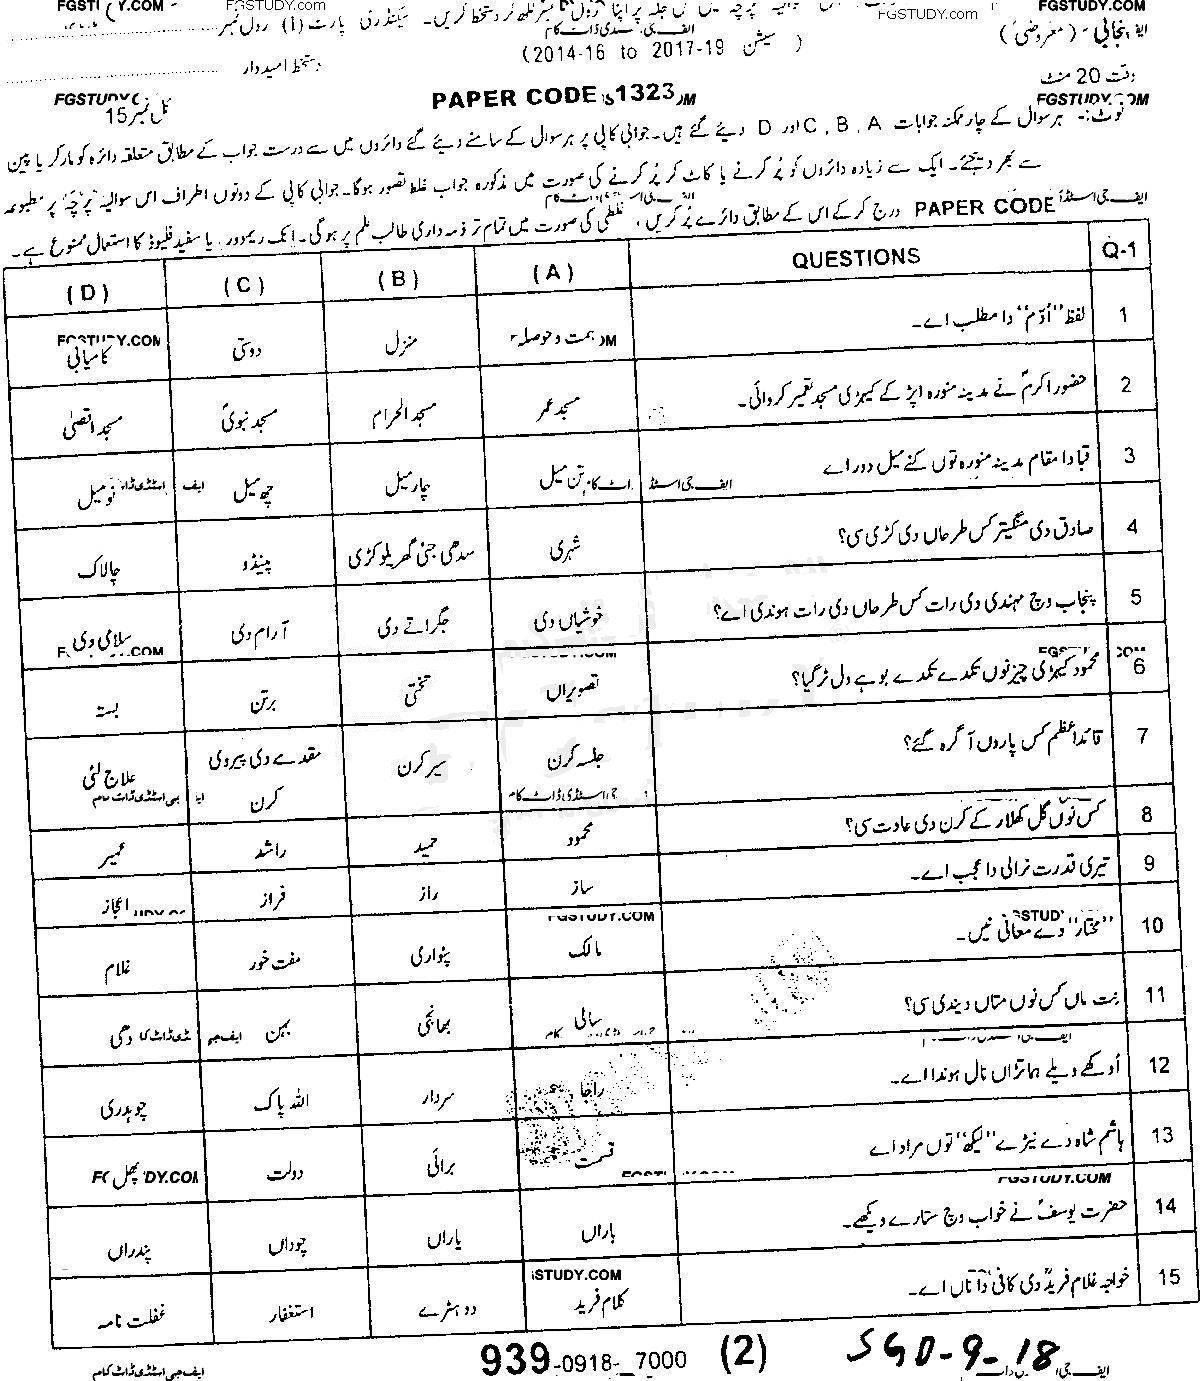 FGSTUDY.COM
FGSTUDY.com
FGSTUDY.com
FGSTUDY.COM
پنجابی - (معروضی)
سیکنڈری پارٹ (i) رول نمبر
(سیشن 2014-16 to 2017-19)
دستخط امیدوار
وقت 20 منٹ
PAPER CODE 1323
FGSTUDY.COM
کل نمبر 15
نوٹ:- ہر سوال کے چار ممکنہ جوابات A , B , C اور D دیئے گئے ہیں۔ جوابی کاپی پر ہر سوال کے سامنے دیئے گئے دائروں میں سے درست جواب کے مطابق متعلقہ دائرہ کو مارکر یا پین
سے بھر دیجئے۔ ایک سے زیادہ دائروں کو پُر کرنے یا کاٹ کر پُر کرنے کی صورت میں مذکورہ جواب غلط تصور ہوگا۔ جوابی کاپی کے دونوں اطراف اس سوالیہ پرچہ پر مطبوعہ
PAPER CODE درج کر کے اس کے مطابق دائرے پُر کریں، غلطی کی صورت میں تمام تر ذمہ داری طالب علم پر ہوگی۔ انک ریموور یا سفید فلیوڈ کا استعمال ممنوع ہے۔
Q-1 QUESTIONS (A) (B) (C) (D)
1 لفظ "اُدّم" دا مطلب اے۔ ہمت و حوصلہ منزل دوستی کامیابی
2 حضور اکرمؐ نے مدینہ منورہ اپڑ کے کیہڑی مسجد تعمیر کروائی۔ مسجد عمر مسجد الحرام مسجد نبویؐ مسجد اقصیٰ
3 قبا دا مقام مدینہ منورہ توں کنے میل دور اے تن میل چار میل چھ میل نو میل
4 صادق دی منگیتر کس طرحاں دی کڑی سی؟ شہری سدھی جئی گھریلو کڑی پینڈو چالاک
5 پنجاب وچ مہندی دی رات کس طرحاں دی رات ہوندی اے؟ خوشیاں دی جگراتے دی آرام دی سلامی دی
6 محمود کیہڑی چیز نوں تکدے تکدے بوہے ول ٹر گیا؟ تصویراں تختی برتن بستہ
7 قائداعظم کس پاروں آگرہ گئے؟ جلسہ کرن سیر کرن مقدمے دی پیروی کرن علاج لئی
8 کس نوں گل کھلار کے کرن دی عادت سی؟ محمود حمید راشد عمیر
9 تیری قدرت نرالی دا عجب اے۔ ساز راز فراز اعجاز
10 "مختار" دے معانی نیں۔ مالک پٹواری مفت خور غلام
11 بنت ماں کس نوں متاں دیندی سی؟ سالی بھانجی بہن دھی
12 اوکھے ویلے ہماتڑاں نال ہوندا اے۔ راجا سردار اللہ پاک چوہدری
13 ہاشم شاہ دے نیڑے "لیکھ" توں مراد اے قسمت برائی دولت پھل
14 حضرت یوسفؑ نے خواب وچ ستارے دیکھے۔ باراں یاراں چوداں پندراں
15 خواجہ غلام فریدؒ دی کافی دا ناں اے۔ کلام فرید دوہڑے استغفار غفلت نامہ
939-0918-7000 (2) SGD-9-18
ایف جی اسٹڈی ڈاٹ کام